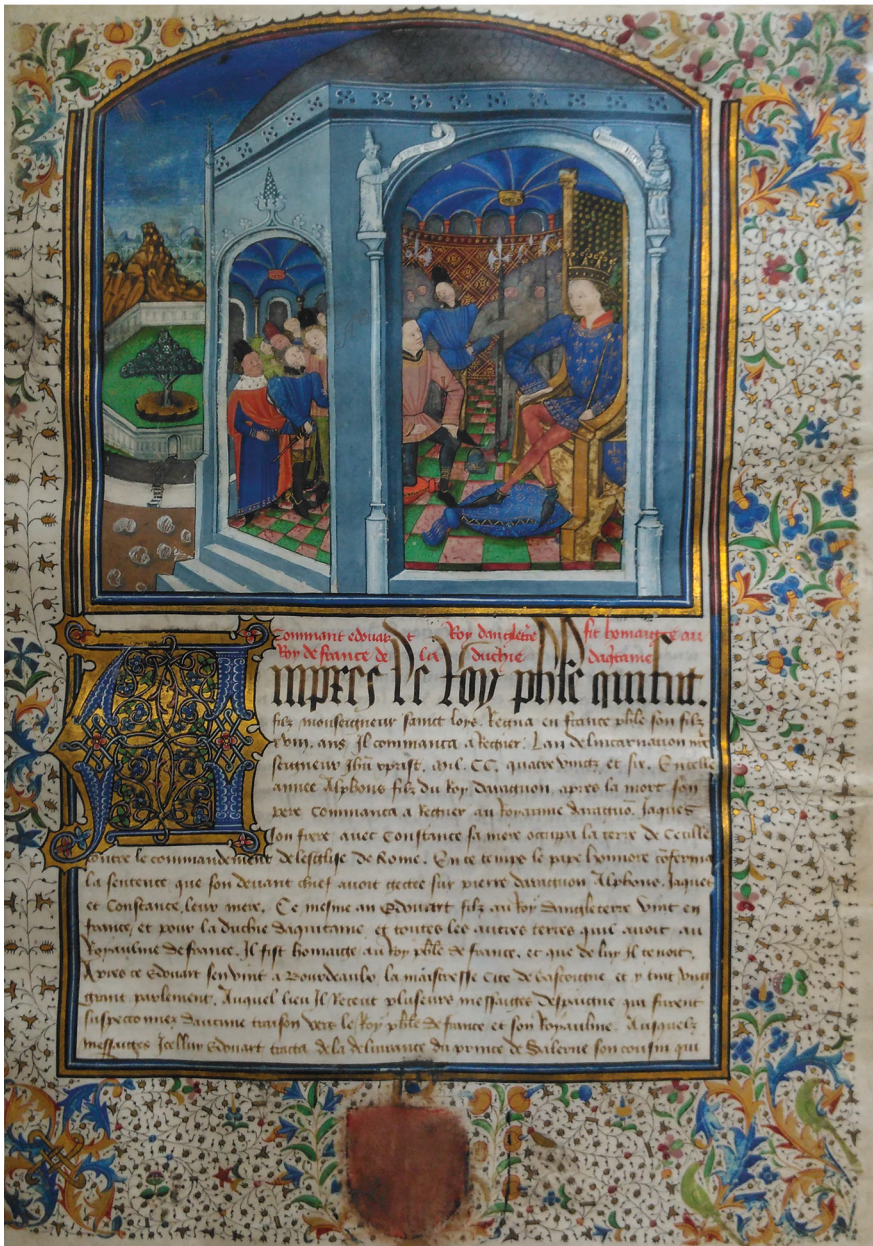 Commant edouart Roy dangleterre fit homaige au
Roy de france de la duchie dacqtaine
Impres le Roy phle quifut
filz monseigneur sainct loys. Regna en france phle son filz
xviii. ans. Il commanca a Regner. Lan delincarnation nre
seigneur Jhu xprist. mil. CC. quatre vingtz. et six. En celle
annee Alphons filz du Roy darragon, apres la mort son
pere Commanca a Regner au Royaume darragon. Jaques
son frere avec Constance sa mere occupa la terre de Cecille
contre le commandement de leglise de Rome. En ce temps le pape honnore conferma
la sentence que son devant chief avoit gectee sur pierre darragon Alphons. Jaques
et Constance, leur mere. Ce mesme an Edouart filz au Roy dangleterre vint en
france, et pour la duchie daquitaine, et toutes les autres terres qui avoit au
Royaulme de france. Il fist homaige au Roy phle de france, et que de luy Il tenoit.
Apres ce Edouart senvint a Bourdeaulx la maistresse Cite de Gascoigne, et y tint ung
grant parlement. Auquel lieu Il Receut plusieurs messaiges despaigne qui furent
suspeconnez daucune traison vers le Roy phle de france et son Royaulme. Ausquelz
messaiges Icelluy Edouart tracta de la delivrance du prince de Salerne son cousin qui